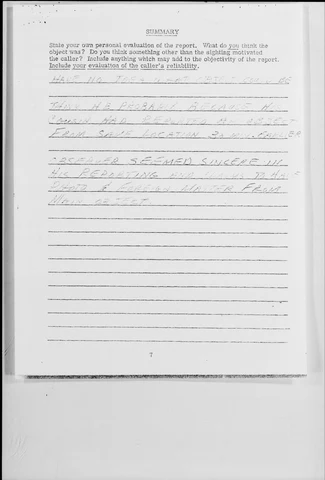 SUMMARY
State your own personal evaluation of the report. What do you think the
object was? Do you think something other than the sighting motivated
the caller? Include anything which may add to the objectivity of the report.
Include your evaluation of the caller's reliability.
HAVE NO IDEA WHAT OBJECT COULD BE
HE PROBABLY BECAUSE HIS
COUSIN HAD REPORTED AN OBJECT
FROM SAME LOCATION 30 MIN. EARLIER
OBSERVER SEEMED SINCERE IN
HIS REPORTING AND
FROM
OBJECT
7